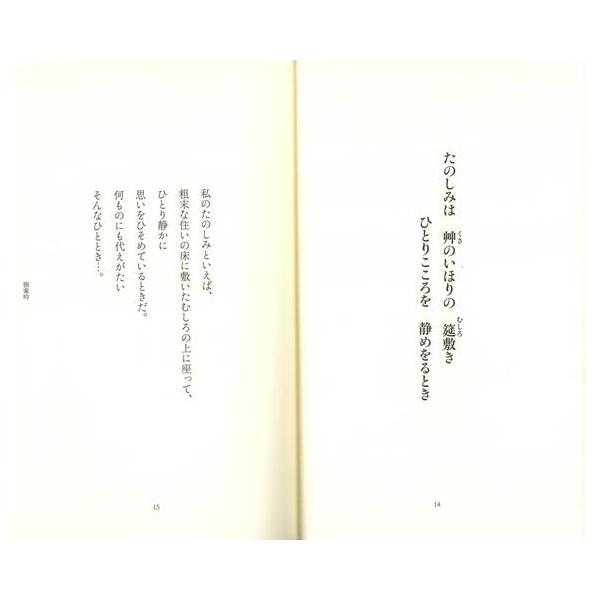 たのしみは 艸のいほりの 筵敷き
ひとりこころを 静めをるとき
14
私のたのしみといえば、
粗末な住いの床に敷いたむしろの上に座って、
ひとり静かに
思いをひそめているときだ。
何ものにも代えがたい
そんなひととき…。
独楽吟
15